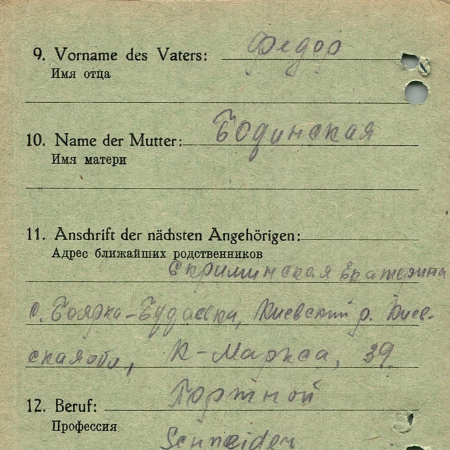 9. Vorname des Vaters: Федор
Имя отца
10. Name der Mutter: Бодинская
Имя матери
11. Anschrift der nächsten Angehörigen:
Адрес ближайших родственников
Скриминская Екатерина
с. Боярка-Будаевка, Киевский р. Киев-
ская обл, К-Маркса, 39.
12. Beruf: Портной
Профессия
Schneider